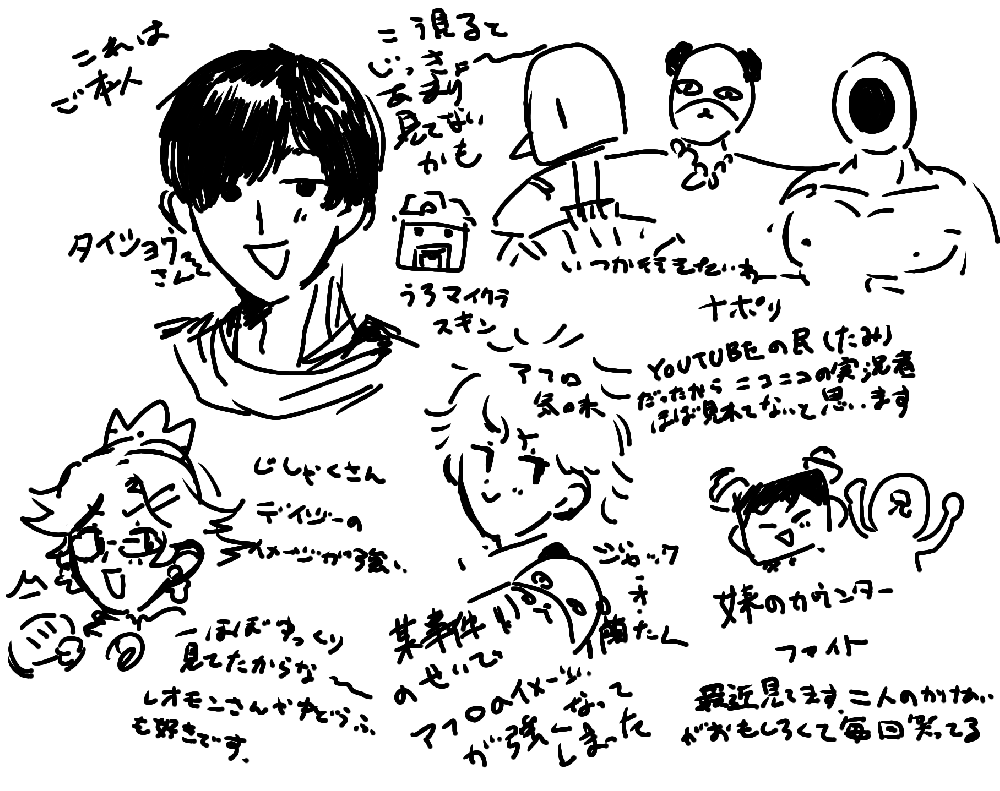 これは
ご本人
こう見ると
じっきょ
あまり
見てない
かも
タイショウ
さんて
うろマイクラ
スキン
いつかそそきたいね
ナポリ
YOUTUBEの民(たみ)
だったから ニコニコの実況者
ほぼ見れてないと思います
アフロ
気の木
じしゃくさん
デイジーの
イメージが強い
ほぼゆっくり
見てたからな〜
レオモンさんやゆどうふ
も好きです。
ジャック
・オ・
蘭たん
某事件
のせいで
アフロのイメージ
が強くなって
しまった
兄
妹のカウンター
ファイト
最近見てます 二人のかけあい
がおもしろくて毎回笑ってる